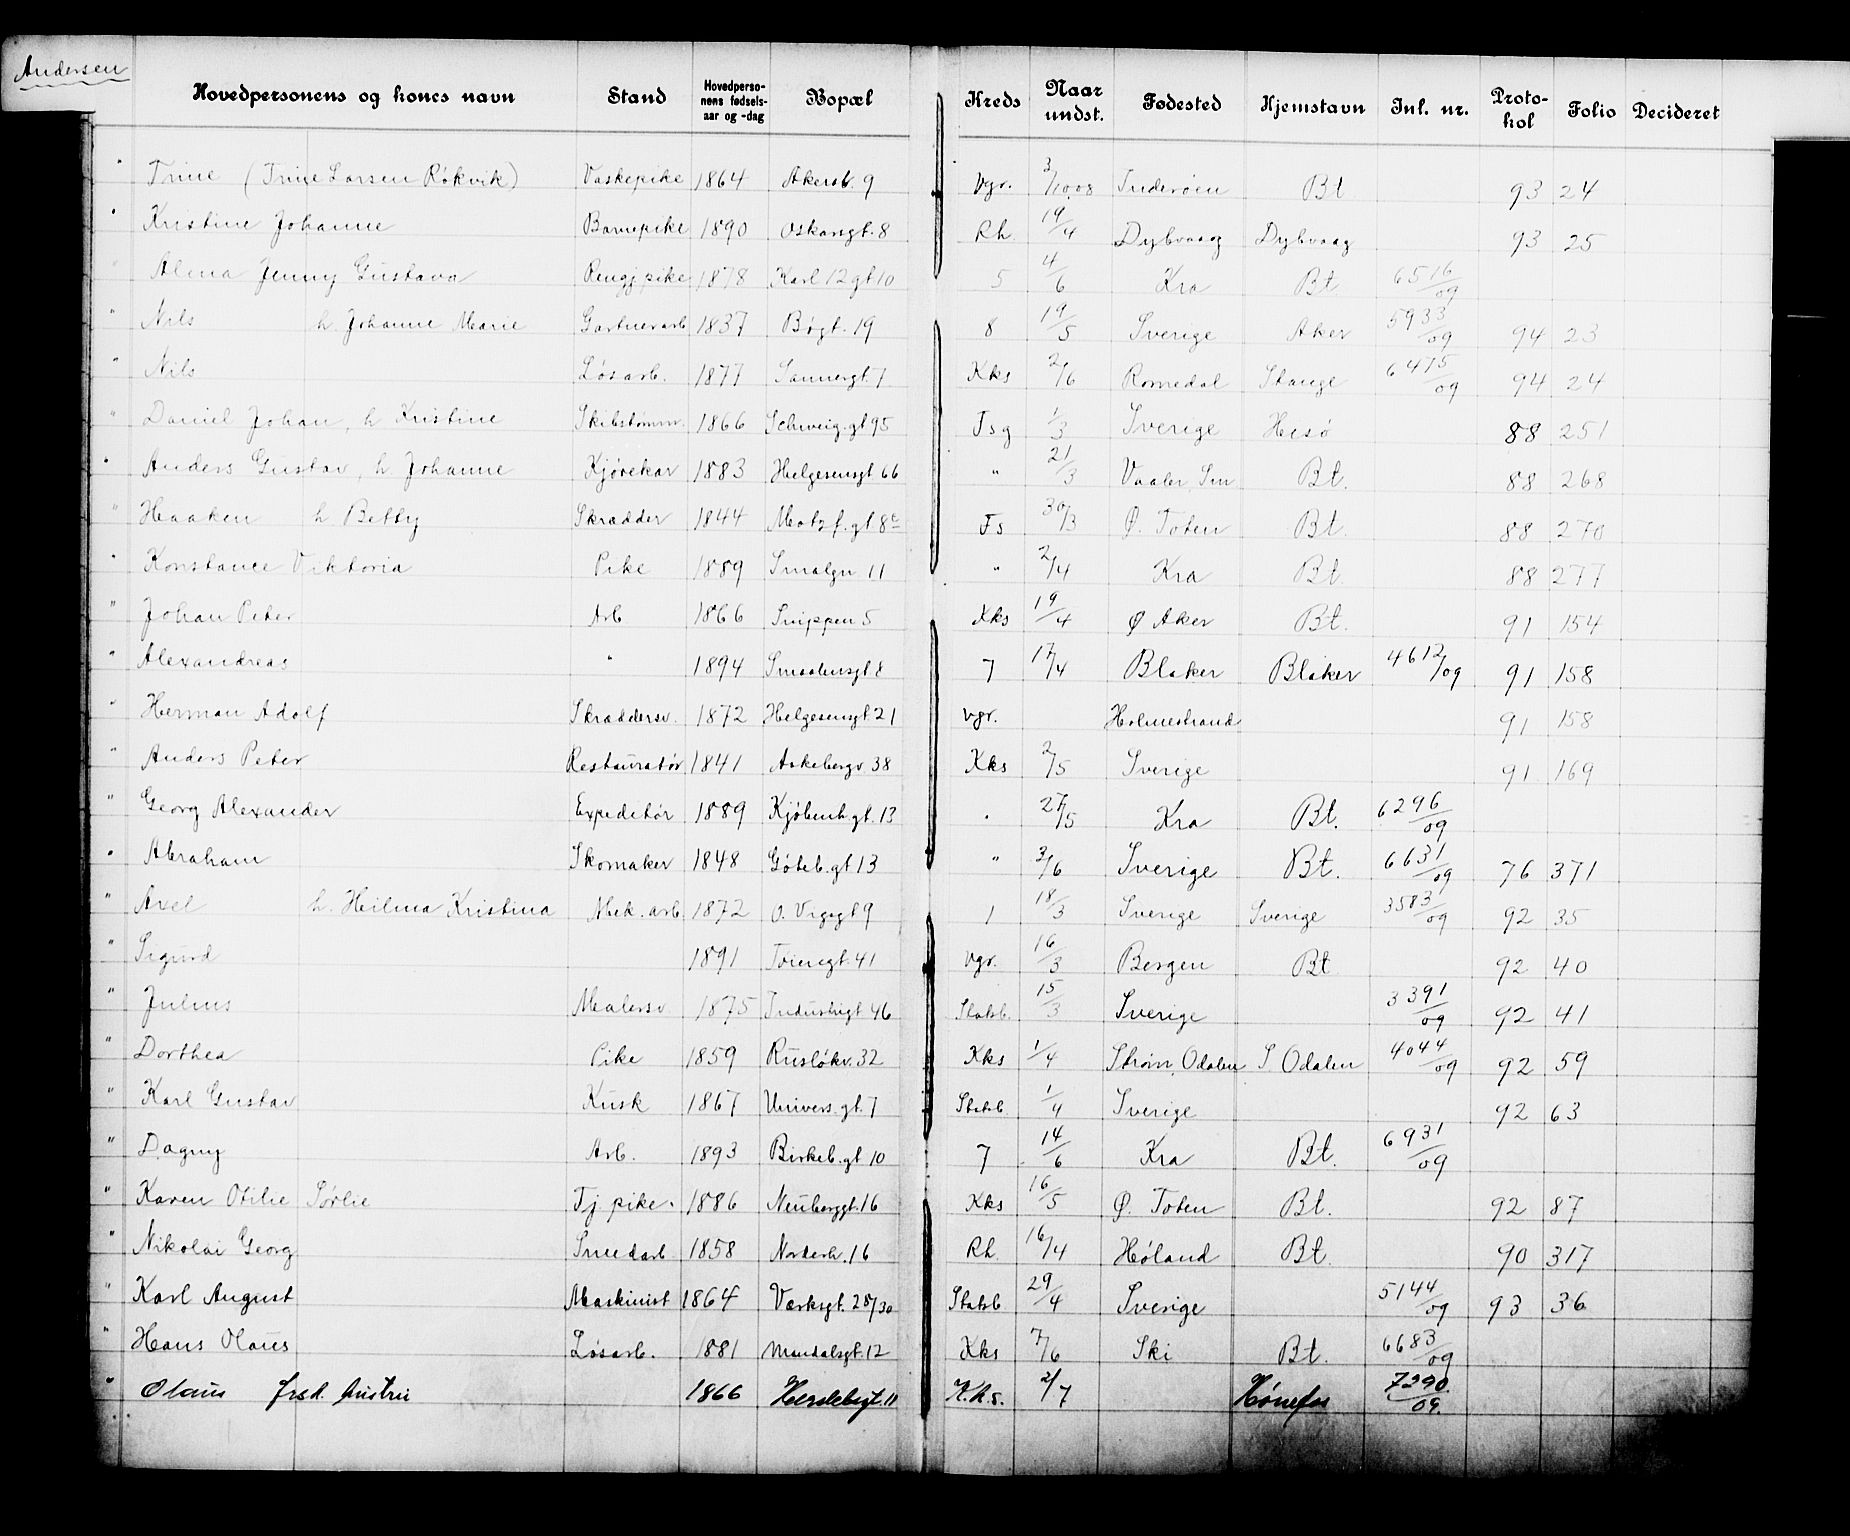 Andersen
Hovedpersonens og kones navn Stand Hovedperso-nens fødsels-aar og -dag Bopæl Kreds Naar undst. Fødested Hjemstavn Inl. nr. Proto-kol Folio Decideret
" Trine (Trine Larsen Røkvik) Vaskepike 1864 Akersb. 9 Vgr. 3/10.08 Inderøen Bt 93 24
" Kristine Johanne Barnepike 1890 Oskarsgt. 8 Rh. 19/4 Dybvaag Dybvaag 93 25
" Alma Jenny Gustava Rengj.pike 1878 Karl 12 gt 10 5 4/6 Kra Bt 6516/09
" Nils h. Johanne Marie Gartnerarb 1837 Bøgt. 19 8 19/5 Sverige Aker 5933/09 94 23
" Nils Løsarb. 1877 Sannergt. 7 Kks 2/6 Romedal Stange 6475/09 94 24
" Daniel Johan, h Kristine Skibstømm. 1866 Schweig.gt 95 Fsg 1/3 Sverige Hisø 88 251
" Anders Gustav, h. Johanne Kjørekar 1883 Helgesensgt 66 " 21/3 Vaaler, Sm Bt. 88 268
" Haaken h Betty Skrædder 1844 Motzf.gt 8c Fs 30/3 Ø. Toten Bt. 88 270
" Konstance Viktoria Pike 1889 Smalgn 11 " 2/4 Kra Bt. 88 277
" Johan Peter Arb 1866 Snippen 5 Kks 19/4 Ø Aker Bt. 91 154
" Alexandreas " 1894 Smaalensgt 8 7 17/4 Blaker Blaker 4612/09 91 158
" Herman Adolf Skræddersv. 1872 Helgesensgt. 21 Vgr. Holmestrand 91 158
" Anders Peter Restauratør 1841 Aakebergv. 38 Kks 2/5 Sverige 91 169
" Georg Alexander Expeditør 1889 Kjøbenh.gt. 13 " 27/5 Kra Bt. 6296/09
" Abraham Skomaker 1848 Gøteb.gt 13 " 3/6 Sverige Bt. 6631/09 76 371
" Axel h. Heilma Kristina Mek. arb 1872 O. Vigsgt 9 1 18/3 Sverige Sverige 3583/09 92 35
" Sigurd 1891 Tøiengt. 41 Vgr. 16/3 Bergen Bt 92 40
" Julius Malersv 1875 Industrigt 46 Statsb. 15/3 Sverige 3391/09 92 41
" Dorthea Pike 1859 Rusløkv. 32 Kks 1/4 Strøm, Odalen S Odalen 4044/09 92 59
" Karl Gustav Kusk 1867 Univers.gt. 7 Statsb 1/4 Sverige 92 63
" Dagny Arb. 1893 Birkeb.gt 10 7 14/6 Kra Bt. 6931/09
" Karen Otilie Sørlie Tj. pike. 1886 Neuberggt. 16 Kks 16/5 Ø. Toten Bt. 92 87
" Nikolai Georg Smedarb 1858 Norderh. 16 Rh. 16/4 Høland Bt. 90 317
" Karl August Maskinist 1864 Værksgt. 28/30 Statsb 29/4 Sverige 5144/09 93 36
" Hans Olaus Løsarb. 1881 Mandalsgt. 12 Kks 7/6 Ski Bt. 6683/09
" Olaus frad. hustru 1866 Herslebsgt. 11 K.k.s. 2/7 Hønefos 7290/09.